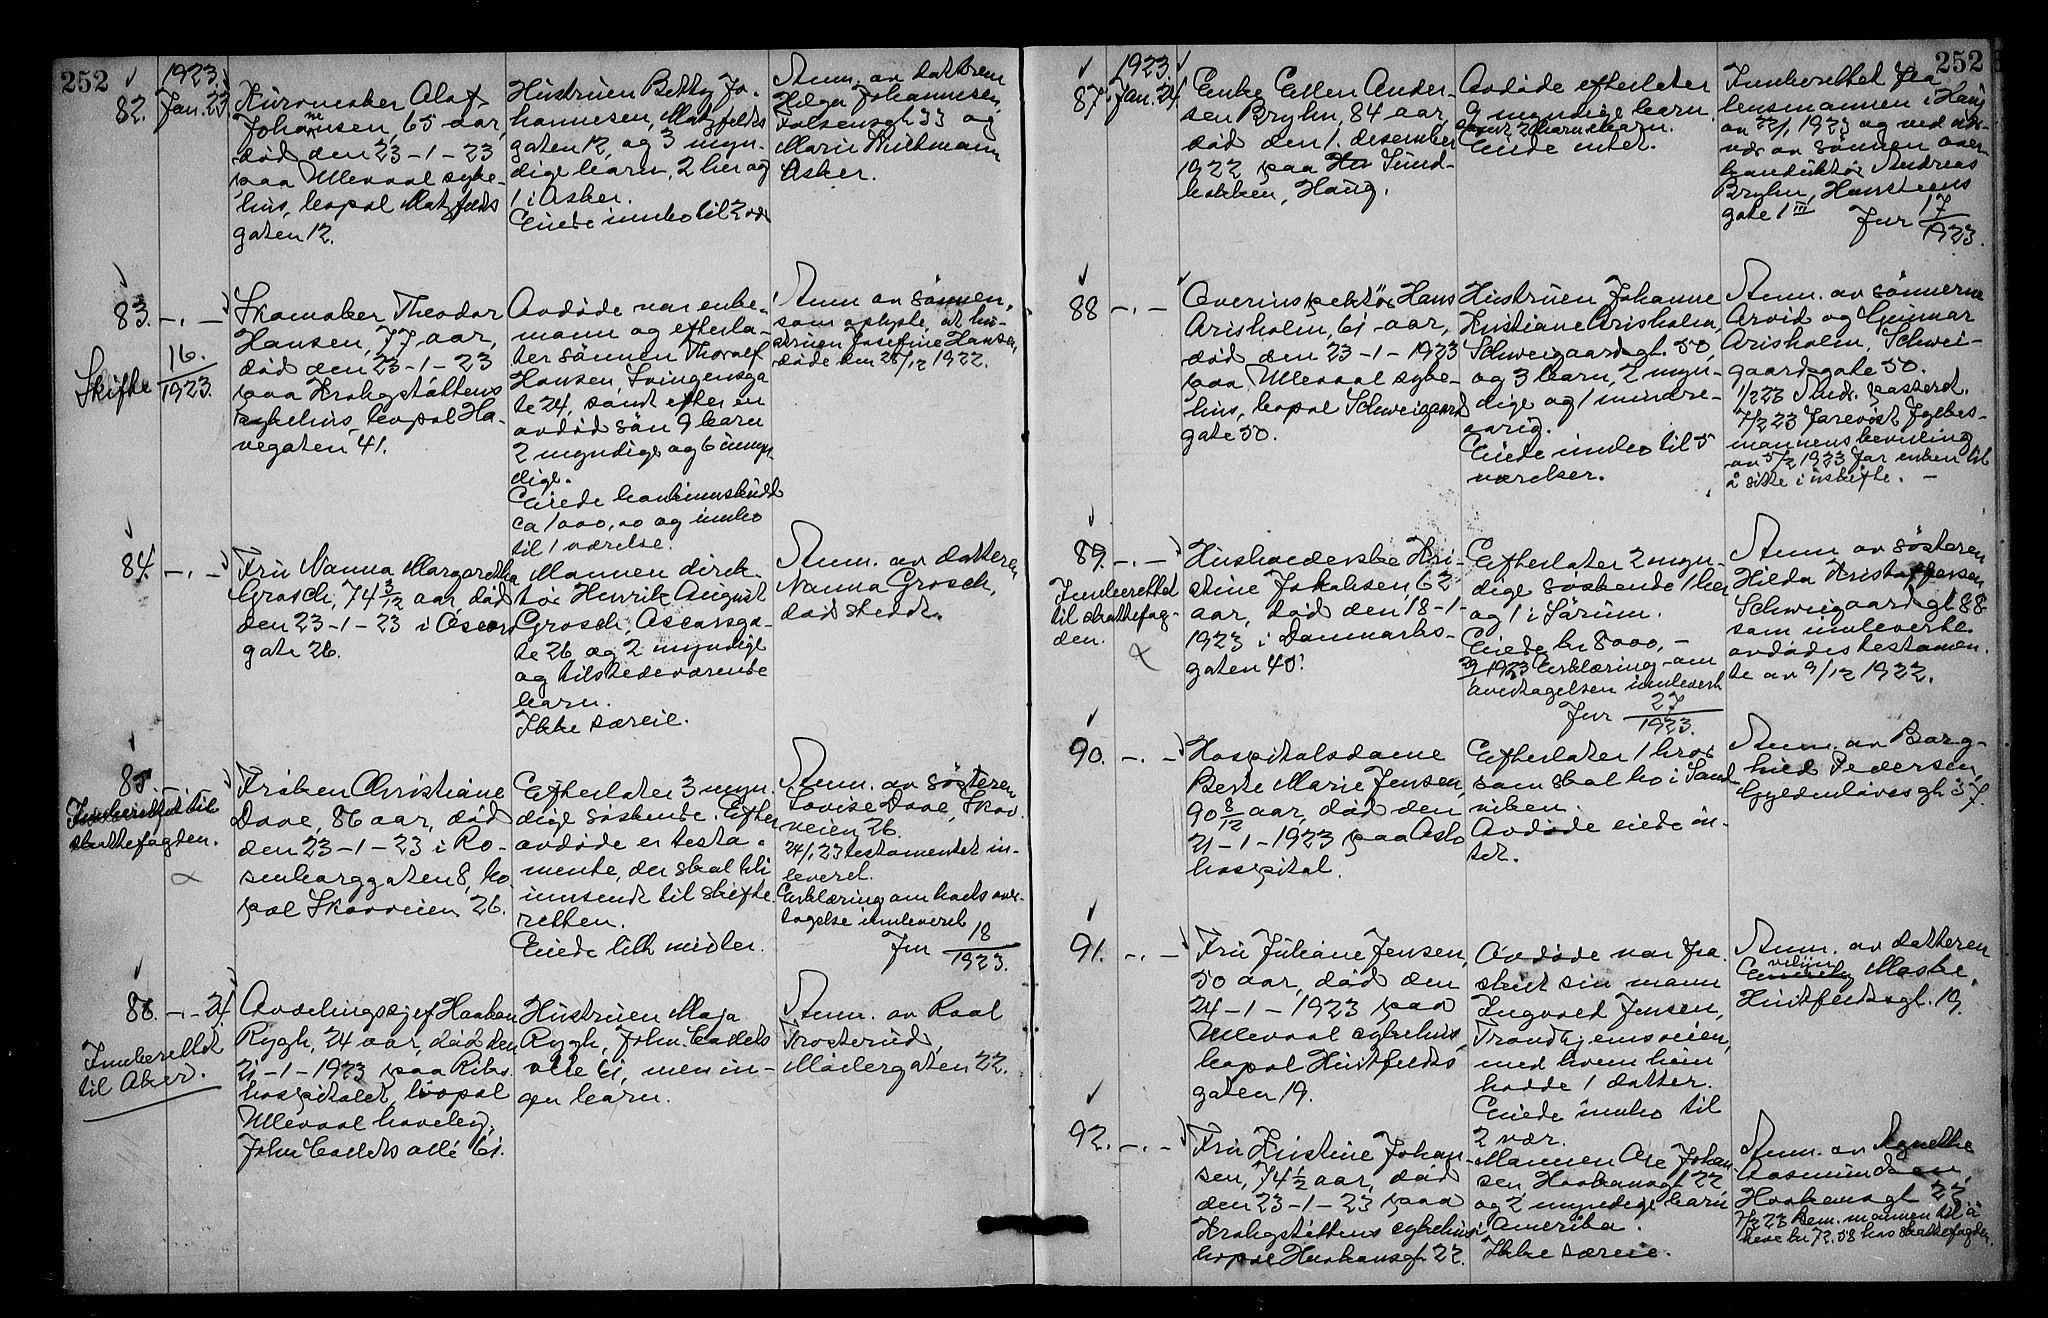 252
1923.
82. Jan. 23.
Kurvmaker Olaf
Johannesen, 65 aar,
død den 23-1-23
paa Ullevaal syke-
hus, bopæl Matzfeldts
gaten 12.
Hustruen Betty Jo-
hannesen, Matzfeldts
gaten 12, og 3 myn-
dige barn, 2 her og
1 i Asker.
Eiede innbo til 2 vær
Anm. av datteren
Helga Johannesen,
Falsensgt 33 og
Marie
Asker.
83. -.-
Skifte 16./1923.
Skomaker Theodor
Hansen, 77 aar,
død den 23-1-23
paa Krohgstøttens
sykehus, bopæl Ha-
vegaten 41.
Avdøde var enke-
mann og efterla-
ter sønnen Thoralf
Hansen, Svingensga
te 24, samt efter en
avdød søn 9 barn
2 myndige og 6 umyn
dige.
Eiede bankinnskudd
ca 1000,00 og innbo
til 1 værelse.
Anm av sønnen,
som oplyste, at hu-
struen Josefine Hansen,
døde den 28/12 1922.
84. -.-
Fru Nanna Margaretha
Grosch, 74 3/12 aar, død
den 23-1-23 i Oscars
gate 26.
Mannen direk-
tør Henrik August
Grosch, Oscarsga-
te 26 og 2 myndige
og tilstedeværende
barn.
Ikke særeie.
Anm. av datteren
Nanna Grosch,
dødstedet.
85.
Innberettet til
skattefogden.
Frøken Christiane
Dave, 86 aar, død
den 23-1-23 i Ro-
senborggaten 8, bo
pæl Skovveien 26.
Efterlater 3 myn
dige søskende. Efter
avdøde er testa-
mente, der skal bli
innsendt til skifte
retten.
Eiede litt midler.
Anm. av søsteren
Lovise Dave, Skov
veien 26.
24/1 23 testamentet in-
leveret.
Erklæring om boets over-
tagelse innleveret
Jnr 18/1923.
86. -.- 24.
Innberettet
til Aker.
Avdelingssjef Haakon
Rygh, 24 aar, død den
21-1-1923 paa Riks
hospitalet, bopæl
Ullevaal haveby,
John Colletts allé 61.
Hustruen Maja
Rygh, John Colletts
alle 61, men in-
gen barn.
Anm. av Roal
Trosterud,
Møllergaten 22.
252
1923
87. Jan. 24.
Enke Ellen Ander-
sen Bryhn, 84 aar,
død den 1. desember
1922 paa Sund-
bakken, Haug.
Avdøde efterlater
9 myndige barn
samt 2 barnebarn.
Eiede intet.
Innberettet fra
lensmannen i Haug
av 22/1 1923 og ved
av sønnen over-
konduktør Andreas
Bryhn, Hansteens
gate 1 III
Jnr 17/1923.
88 -.-
Overinspektør Hans
Arisholm, 61 aar,
død den 23-1-1923
paa Ullevaal syke-
hus, bopæl Schweigaard
gate 50.
Hustruen Johanne
Kristiane Arisholm,
Schweigaardsgt. 50,
og 3 barn, 2 myn-
dige og 1 mindre-
aarig.
Eiede innbo til 5
værelser.
Anm. av sønnerne
Arvid og Gunnar
Arisholm, Schwei-
gaardsgate 50.
7/2 23 forevist fylkes-
mannens bevilling
av 5/2 1923 for enken til
å sitte i uskifte.
89. -.-
Innberettet
til skattefog-
den.
Husholderske Kri-
stine Jakobsen, 62
aar, død den 18-1-
1923 i Danmarks-
gaten 40.
Efterlater 2 myn-
dige søskende 1 her
og 1 i Sørum.
Eiede kr 8000,-
1923 Erklæring om
overtagelsen innlevert
Jnr 27/1923.
Anm. av søsteren
Hilda Kristoffersen
Schweigaardsgt 88
som innleverte
avdødes testamen-
te av 9/12 1922.
90. -.-
Hospitalsdame
Berte Marie Jensen,
90 8/12 aar, død den
21-1-1923 paa Oslo
hospital.
Efterlater 1 bror
som skal bo i Sand
viken.
Avdøde eiede in-
tet.
Anm. av Borg-
hild Pedersen,
Gyldenløvesgt 37.
91. -.-
Fru Juliane Jensen,
50 aar, død den
24-1-1923 paa
Ullevaal sykehus,
bopæl Huitfeldts
gaten 19.
Avdøde var fra-
skilt sin mann
Ingvald Jensen,
Trondhjemsveien,
med hvem hun
hadde 1 datter.
Eiede innbo til
2 vær.
Anm. av datteren
Maske,
Huitfeldtsgt. 19.
92. -.-
Fru Kristine Johan-
sen, 74 1/2 aar, død
den 23-1-23 paa
Krohgstøttens sykehus
bopæl Haakonsgt 22.
Mannen Ole Johan
sen Haakonsgt 22
og 2 myndige barn
i Amerika.
Ikke særeie.
Anm. av Agnethe
Aasmundsen,
Haakonsgt 22,
7/2 23 Bem. mannen til å
heve kr 72.58 hos skattefogden.